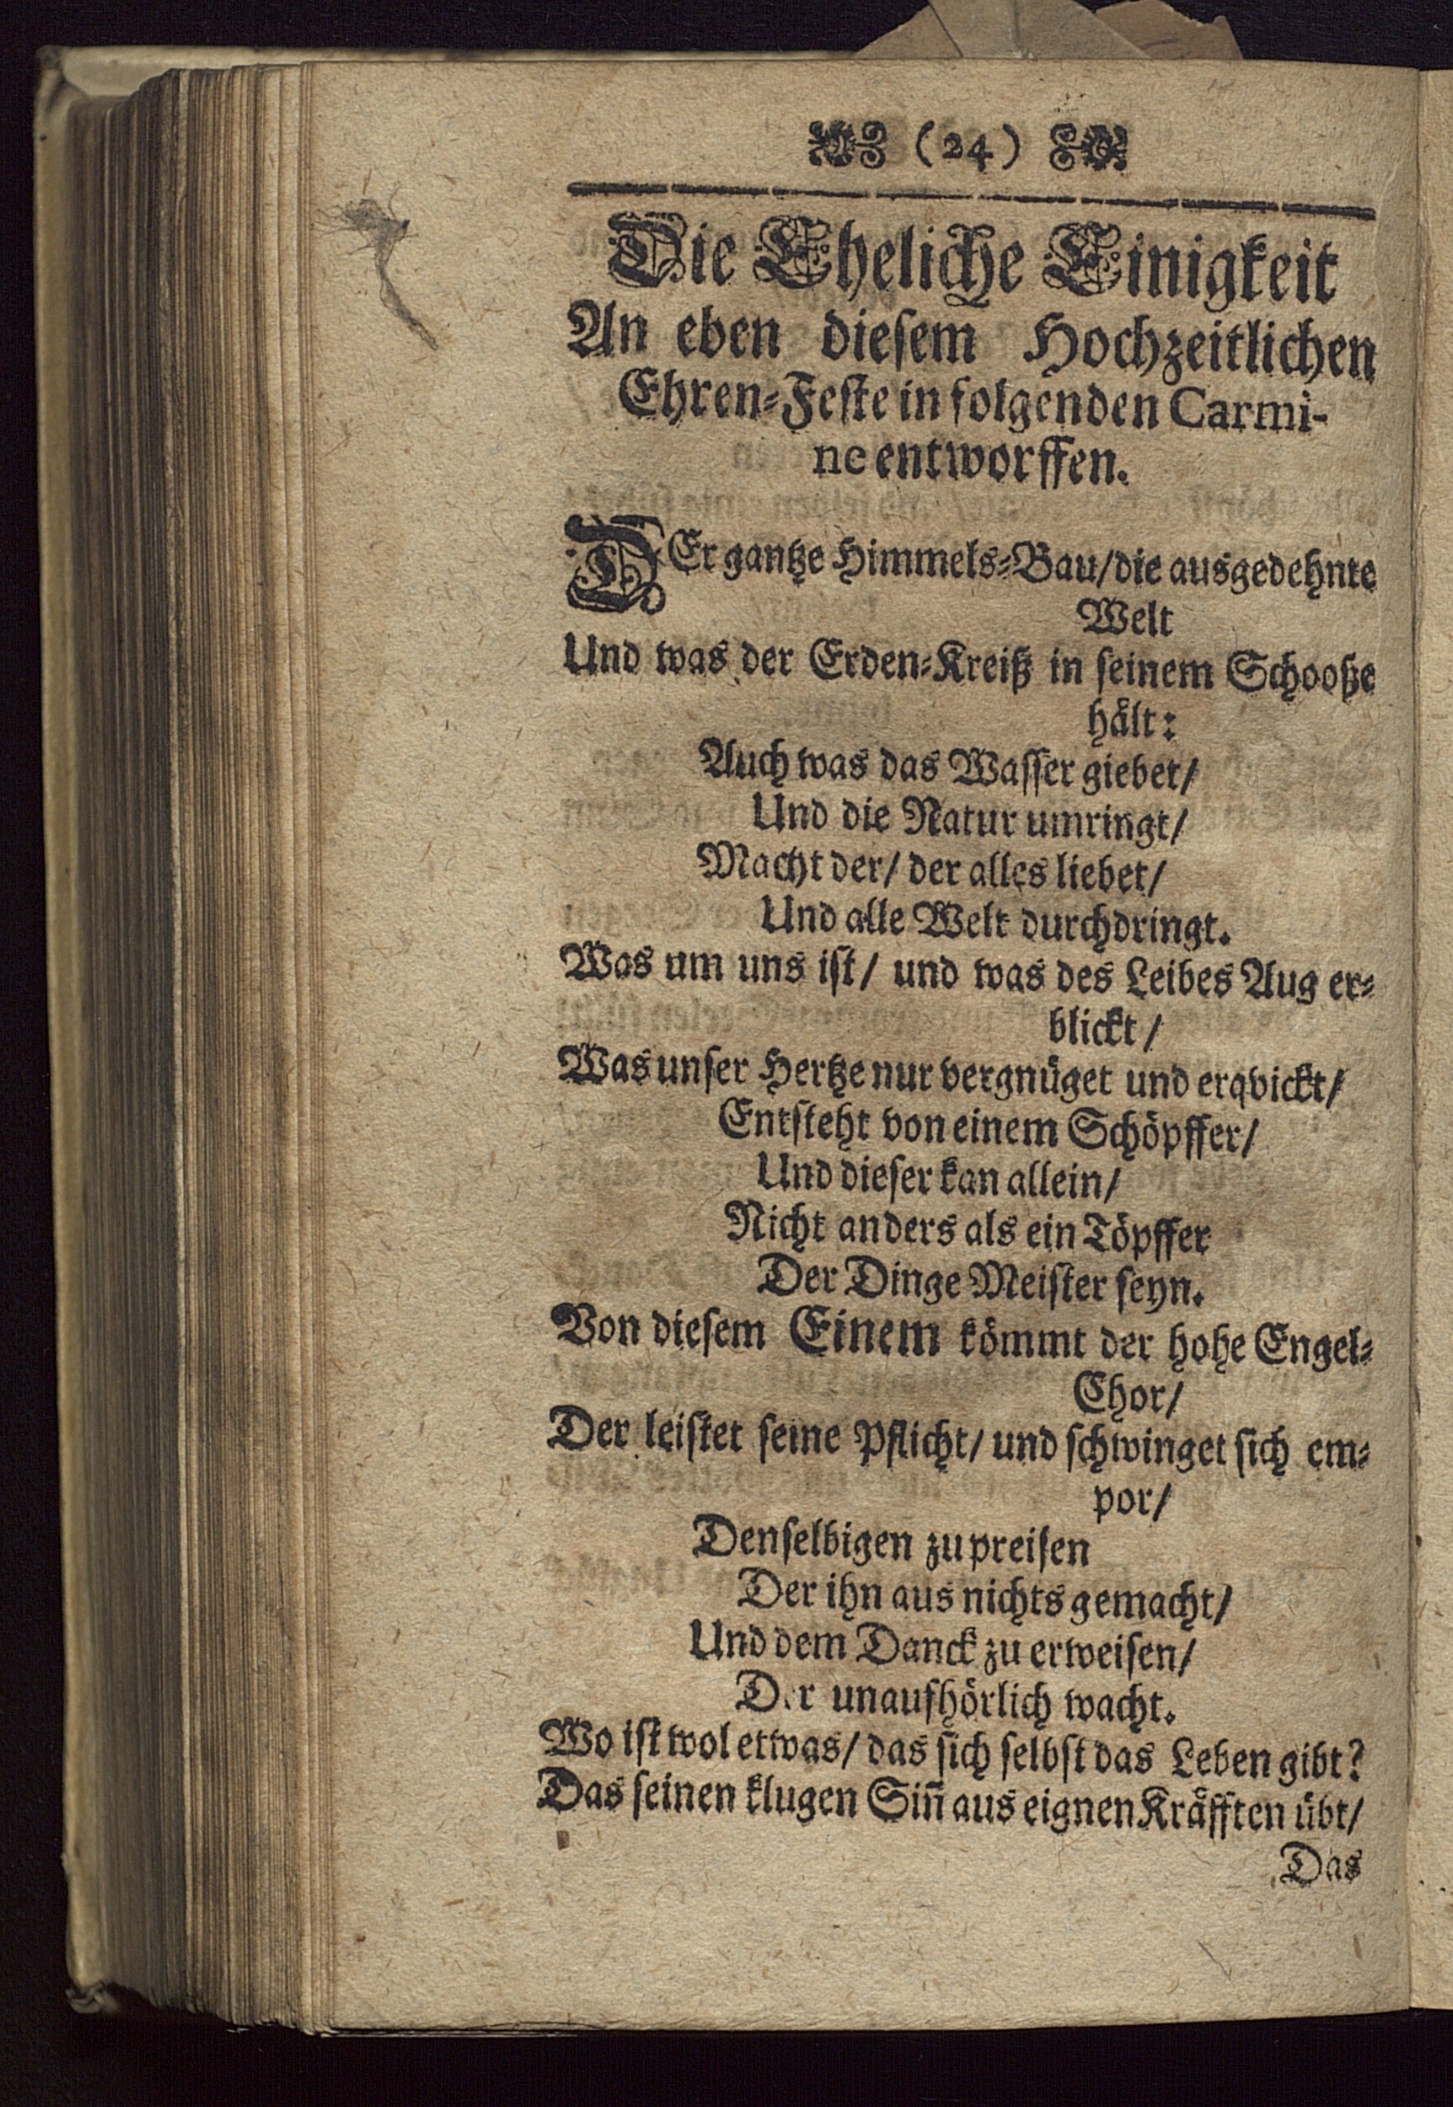 (24)
Die Eheliche Einigkeit
An eben diesem Hochzeitlichen
Ehren-Feste in folgenden Carmi-
ne entworffen.
DEr gantze Himmels-Bau/die ausgedehnte
Welt
Und was der Erden-Kreiß in seinem Schooße
hält:
Auch was das Wasser giebet/
Und die Natur umringt/
Macht der/ der alles liebet/
Und alle Welt durchdringt.
Was um uns ist/ und was des Leibes Aug er-
blickt/
Was unser Hertze nur vergnüget und erqvickt/
Entsteht von einem Schöpffer/
Und dieser kan allein/
Nicht anders als ein Töpffer
Der Dinge Meister seyn.
Von diesem Einem kömmt der hohe Engel-
Chor/
Der leistet seine Pflicht/ und schwinget sich em-
por/
Denselbigen zu preisen
Der ihn aus nichts gemacht/
Und dem Danck zu erweisen/
Der unaufhörlich wacht.
Wo ist wol etwas/ das sich selbst das Leben gibt?
Das seinen klugen Siñ aus eignen Kräfften übt/
Das